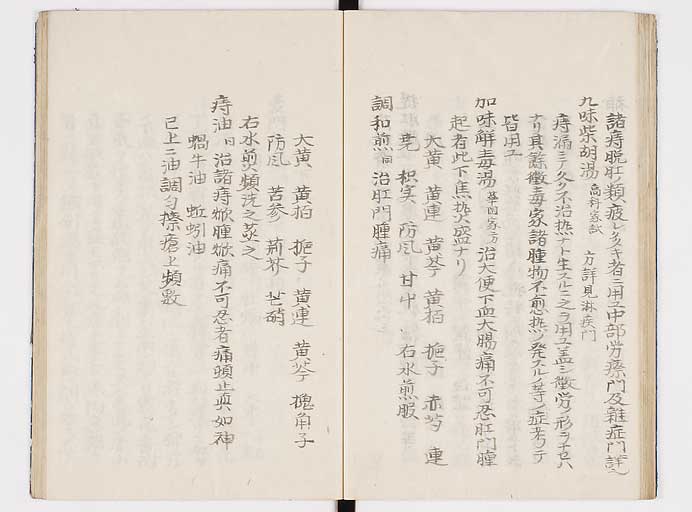 諸痔脱肛ノ類疲レタキ者ニ用ユ中部労瘵門及雑症門ニ詳之
九味柴胡湯 高科家試 方詳見淋疾門
痔漏ニテ久ク不治熱ナト生スルニ之ヲ用ユ蓋シ黴労ノ形ヲナセハ
ナリ其余黴毒家諸腫物不愈熱ノ発スル等ノ症考ヘテ
皆用ユ
加味解毒湯 華岡家方 治大便下血大腸痛不可忍肛門腫
起者此下焦熱盛ナリ
大黄 黄連 黄芩 黄栢 梔子 赤芍 連
尭 枳実 防风 甘艸 右水煎服
調和煎 同 治肛門腫痛
大黄 黄栢 梔子 黄連 黄芩 槐角子
防风 苦参 荊芥 芒硝
右水煎頻洗之蒸之
痔油 同 治諸痔焮腫焮痛不可忍者痛頓止奥如神
蝸牛油 蚯蚓油
已上二油調匀擦瘡上頻数